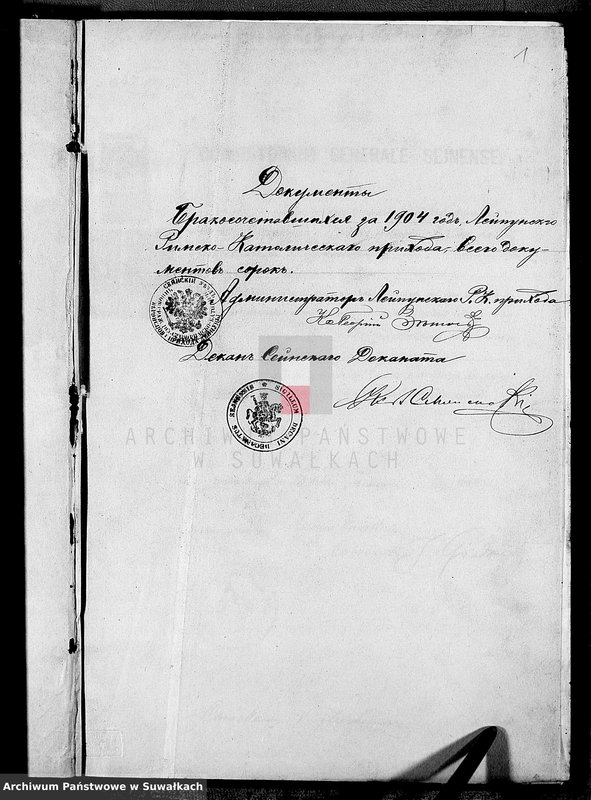 1
Документы
Бракосочетавшихся за 1904 годъ, Лейпунскаго
Римско-Католическаго прихода,-всего доку-
ментовъ сорокъ.
Администраторъ Лейпунскаго Р. К. прихода
Деканъ Сейнскаго Деканата
SIGILLUM DECANI DECANATUS SEJNENSIS
CONSISTORIUM GENERALE SEJNENSE
ARCHIWUM PAŃSTWOWE
W SUWAŁKACH
Archiwum Państwowe w Suwałkach